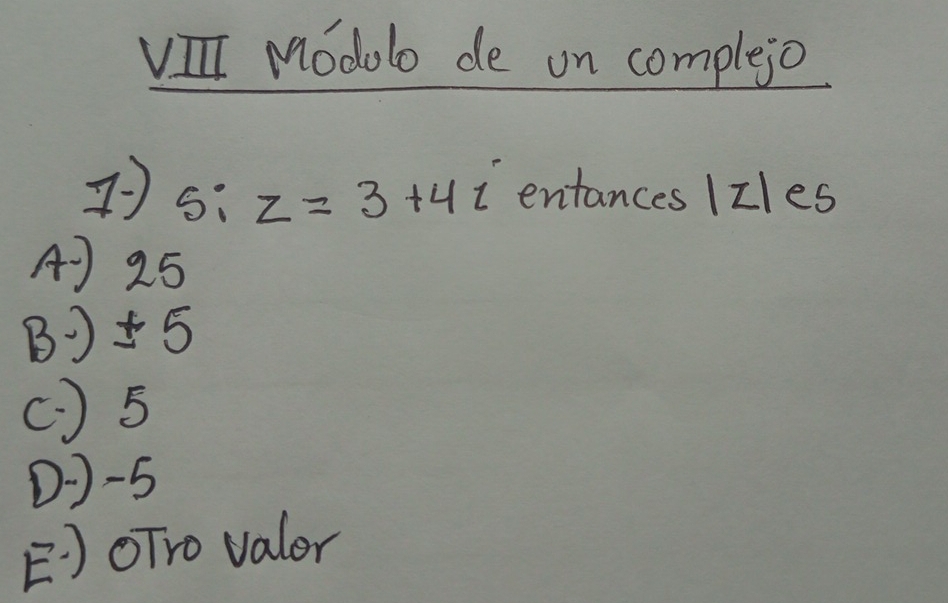 VIII Módulo de un complejo
1-) Si z = 3 + 4 i entances |z| es
A-) 25
B-) ± 5
C-) 5
D-) -5
E-) OTro valor